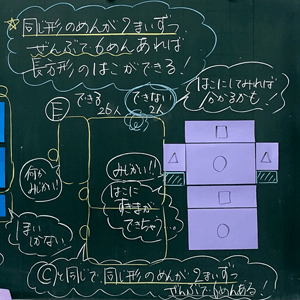 ☆同じ形のめんが2まいずつ
ぜんぶで6めんあれば
長方形のはこができる!
はこにしてみれば
分かるかも!
E
できる
26人
できない
2人
何か
みじかい!
まい
しかない
みじかい!!
はこに
すきまが
できちゃう
Cと同じで同じ形のめんが2まいずつ
ぜんぶで6めんある!